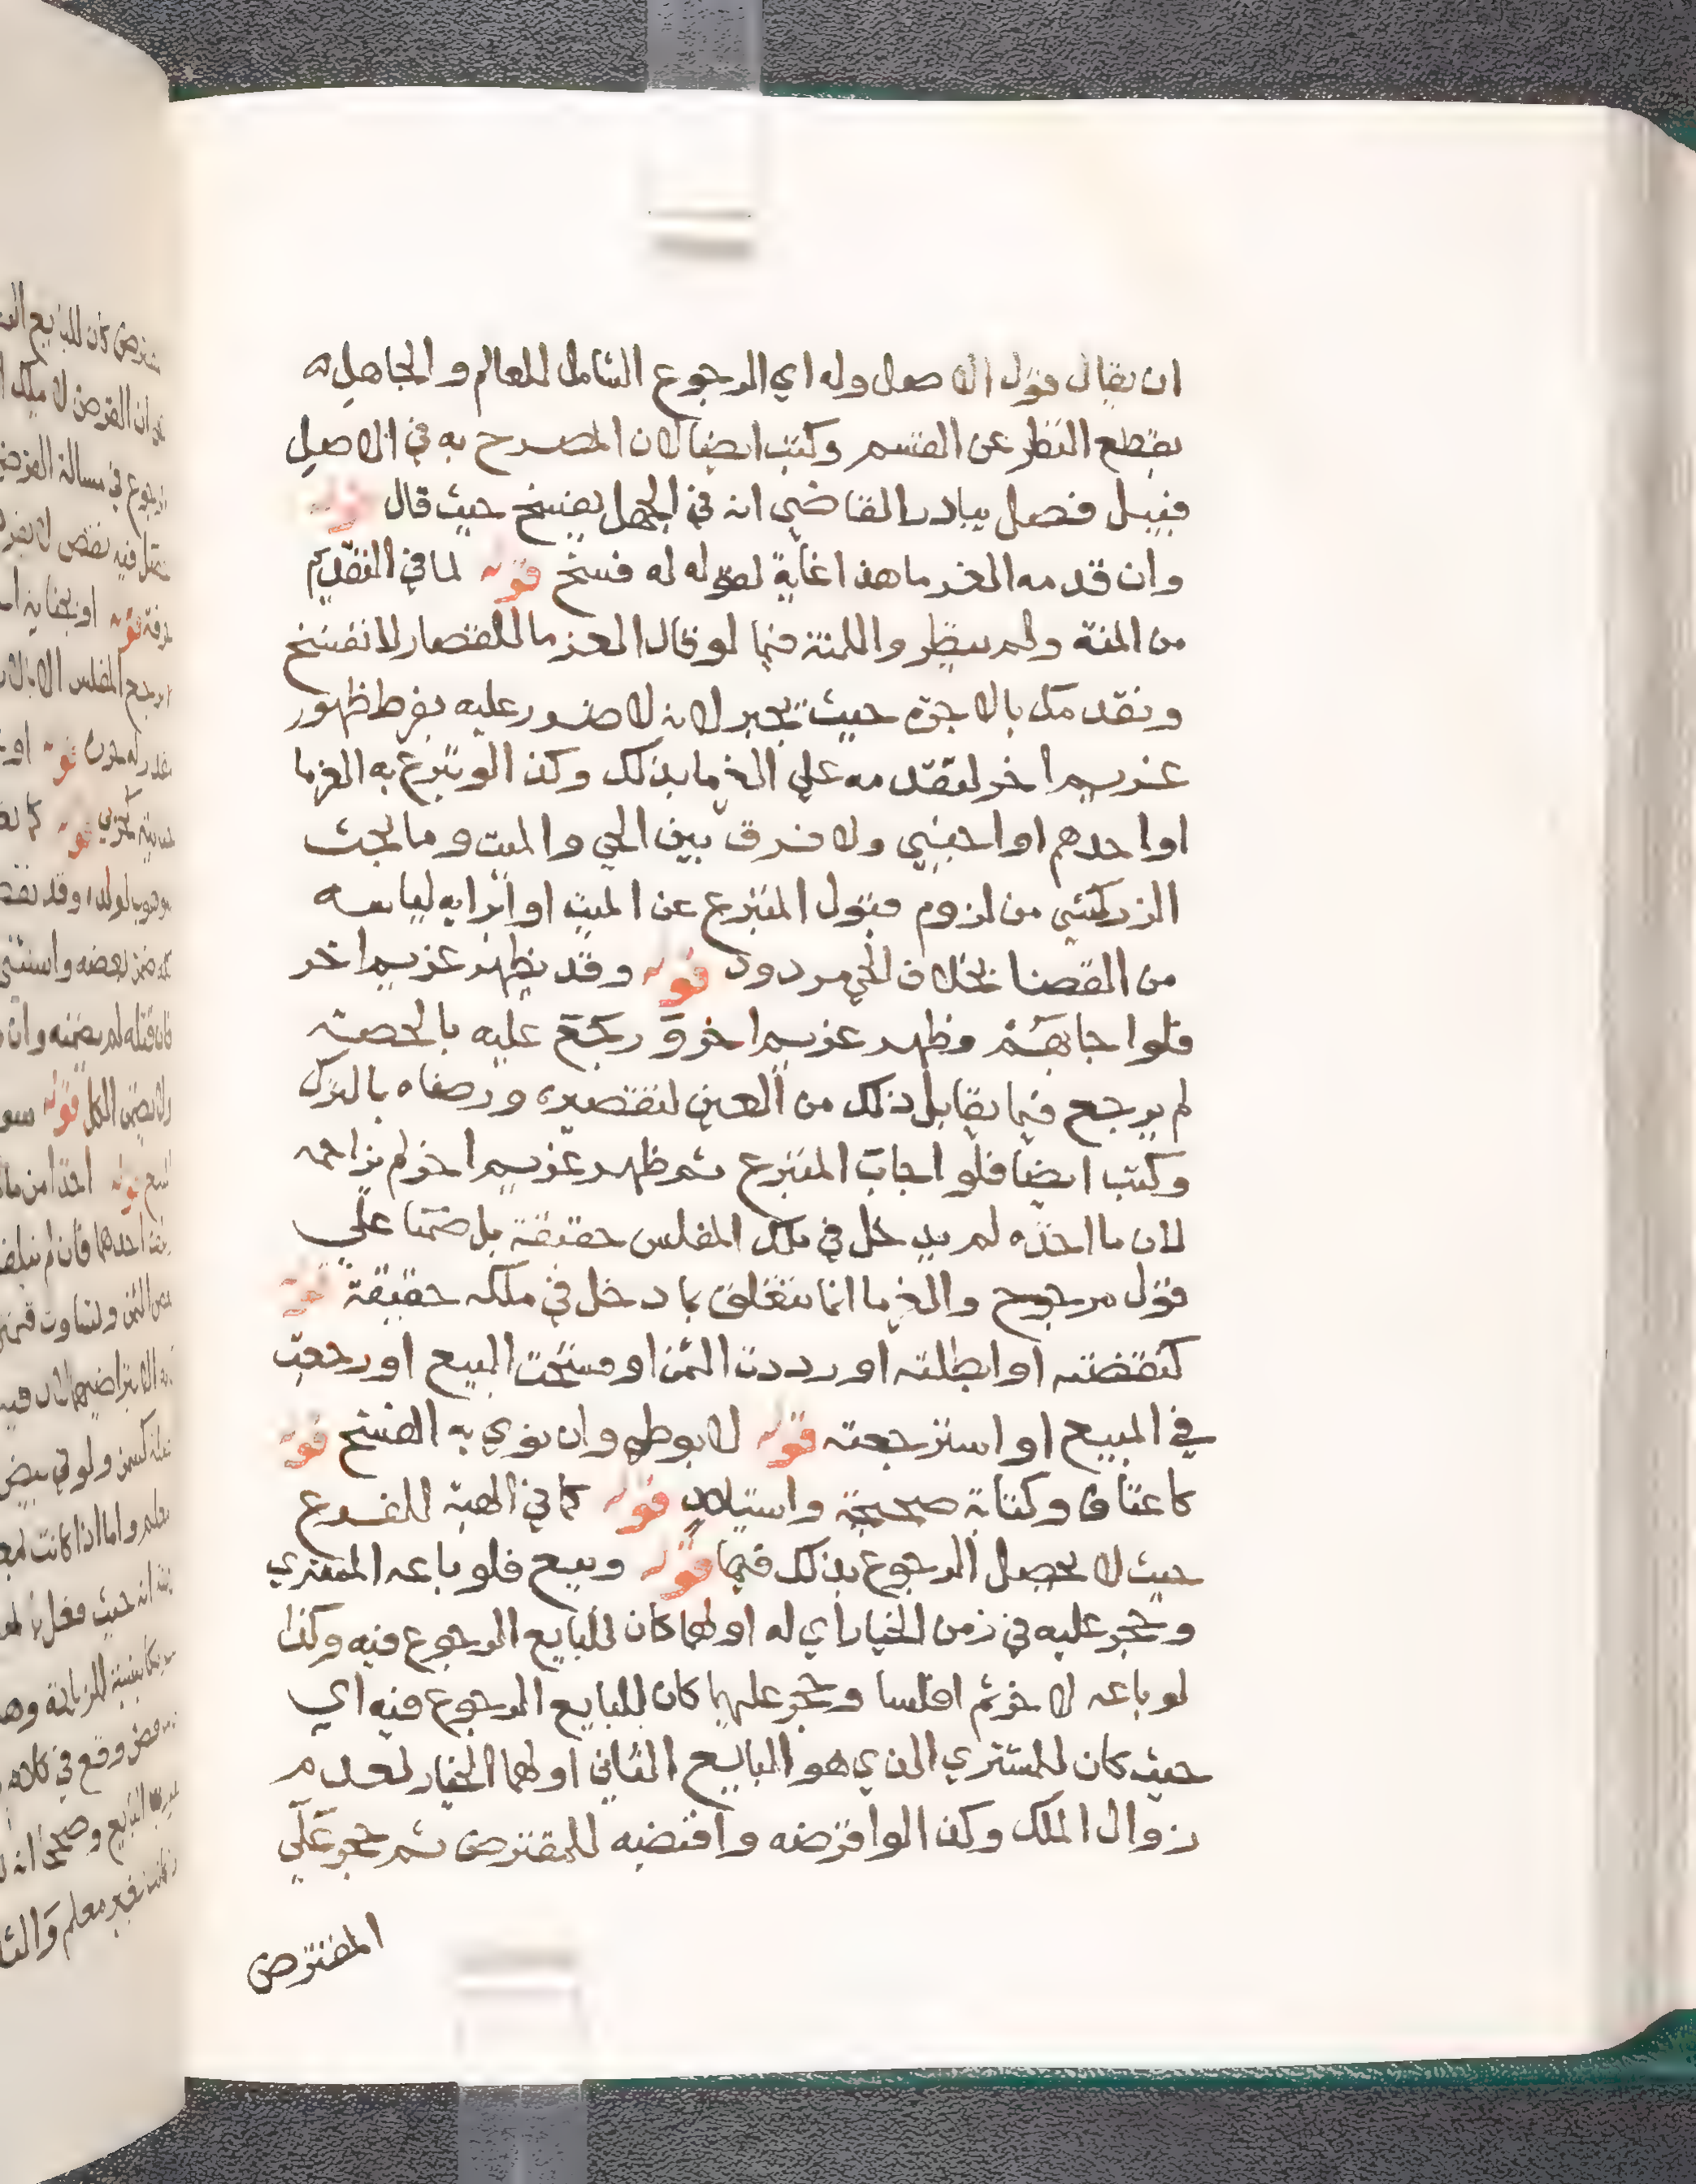 ان يقال قول الاصل وله اي الرجوع الشامل للعالم والجاهل
بقطع النظر عن القسم وكتب ايضا لان المصرح به في الاصل
قبيل فصل يبادر القاضي انه في الجهل يفسخ حيث قال قوله
وان قدمه الغرما هذا غاية لقوله له فسخ قوله لما في التقديم
من المنة ولم ينظر وا للمنة فيما لو قال الغرما للقصار لا تفسخ
ونقدمك بالاجرة حيث يجبر لانه لا ضرر عليه بفرط ظهور
غريم اخر لتقدمه على الغرما بذلك وكذا لو تبرع به الغرما
او احدهم او اجنبي ولا فرق بين الحي والميت وما بحث
الزركشي من لزوم قبول المتبرع عن الميت او ابرايه لياسه
من القضا بخلاف الحي مردود قوله وقد يظهر غريم اخر
فلو اجابهم وظهر غريم اخر و رجع عليه بالحصة
لم يرجع فيما يقابل ذلك من العين لتقصيره ورضاه بالترك
وكتب ايضا فلو اجاب المتبرع ثم ظهر غريم اخر لم يزاحمه
لان ما اخذه لم يدخل في ملك المفلس حقيقة بل ضمنا علي
قول مرجوح والغرما انما تتعلق بما دخل في ملكه حقيقة قوله
كنقضته او ابطلته او رددت الثمن او فسخت البيع او رجعت
في المبيع او استرجعته قوله لا بوطء وان نوي به الفسخ قوله
كاعتاق وكتابة صحيحة واستيلاد قوله كما في الهبة للفرع
حيث لا يحصل الرجوع بذلك فيها قوله وبيع فلو باعه المشتري
وحجر عليه في زمن الخيار اي له او لهما كان للبايع الرجوع فيه وكذا
لو باعه لاخر ثم افلسا وحجر عليهما كان للبايع الرجوع فيه اي
حيث كان للمشتري الذي هو البايع الثاني او لهما الخيار لعدم
زوال الملك وكذا لو اقرضه واقبضه للمقترض ثم حجر علي
المقترض